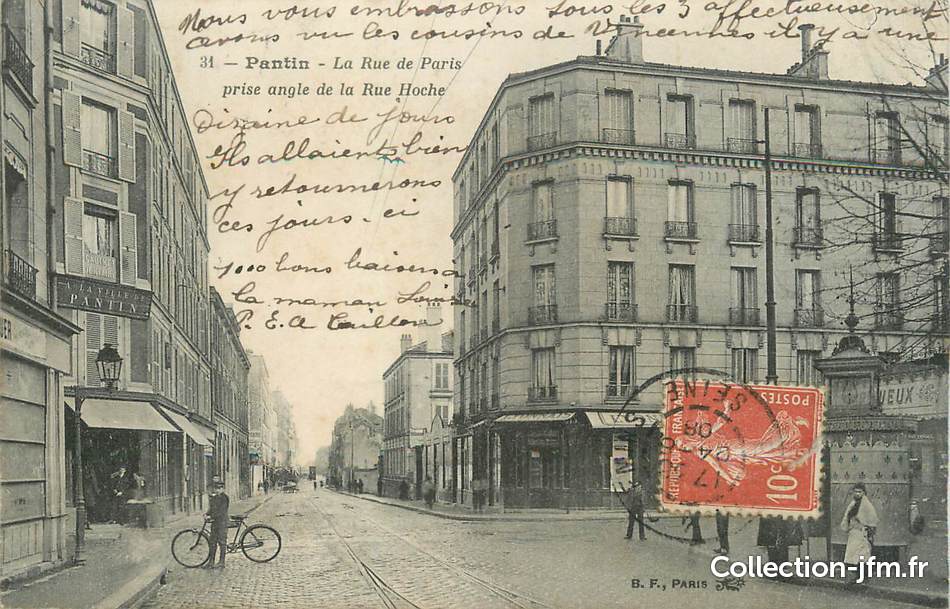 Nous vous embrassons tous les 3 affectueusement
avons vu les cousins de Vincennes il y a une
31 - Pantin - La Rue de Paris
prise angle de la Rue Hoche
Dizaine de jours
Ils allaient bien
y retournerons
ces jours-ci
1000 bons baisers a
la maman Louise
P. E. A
A LA VILLE DE
PANTIN
SEINE
17
04
08
POSTES
10c
B. F., PARIS
Collection-jfm.fr